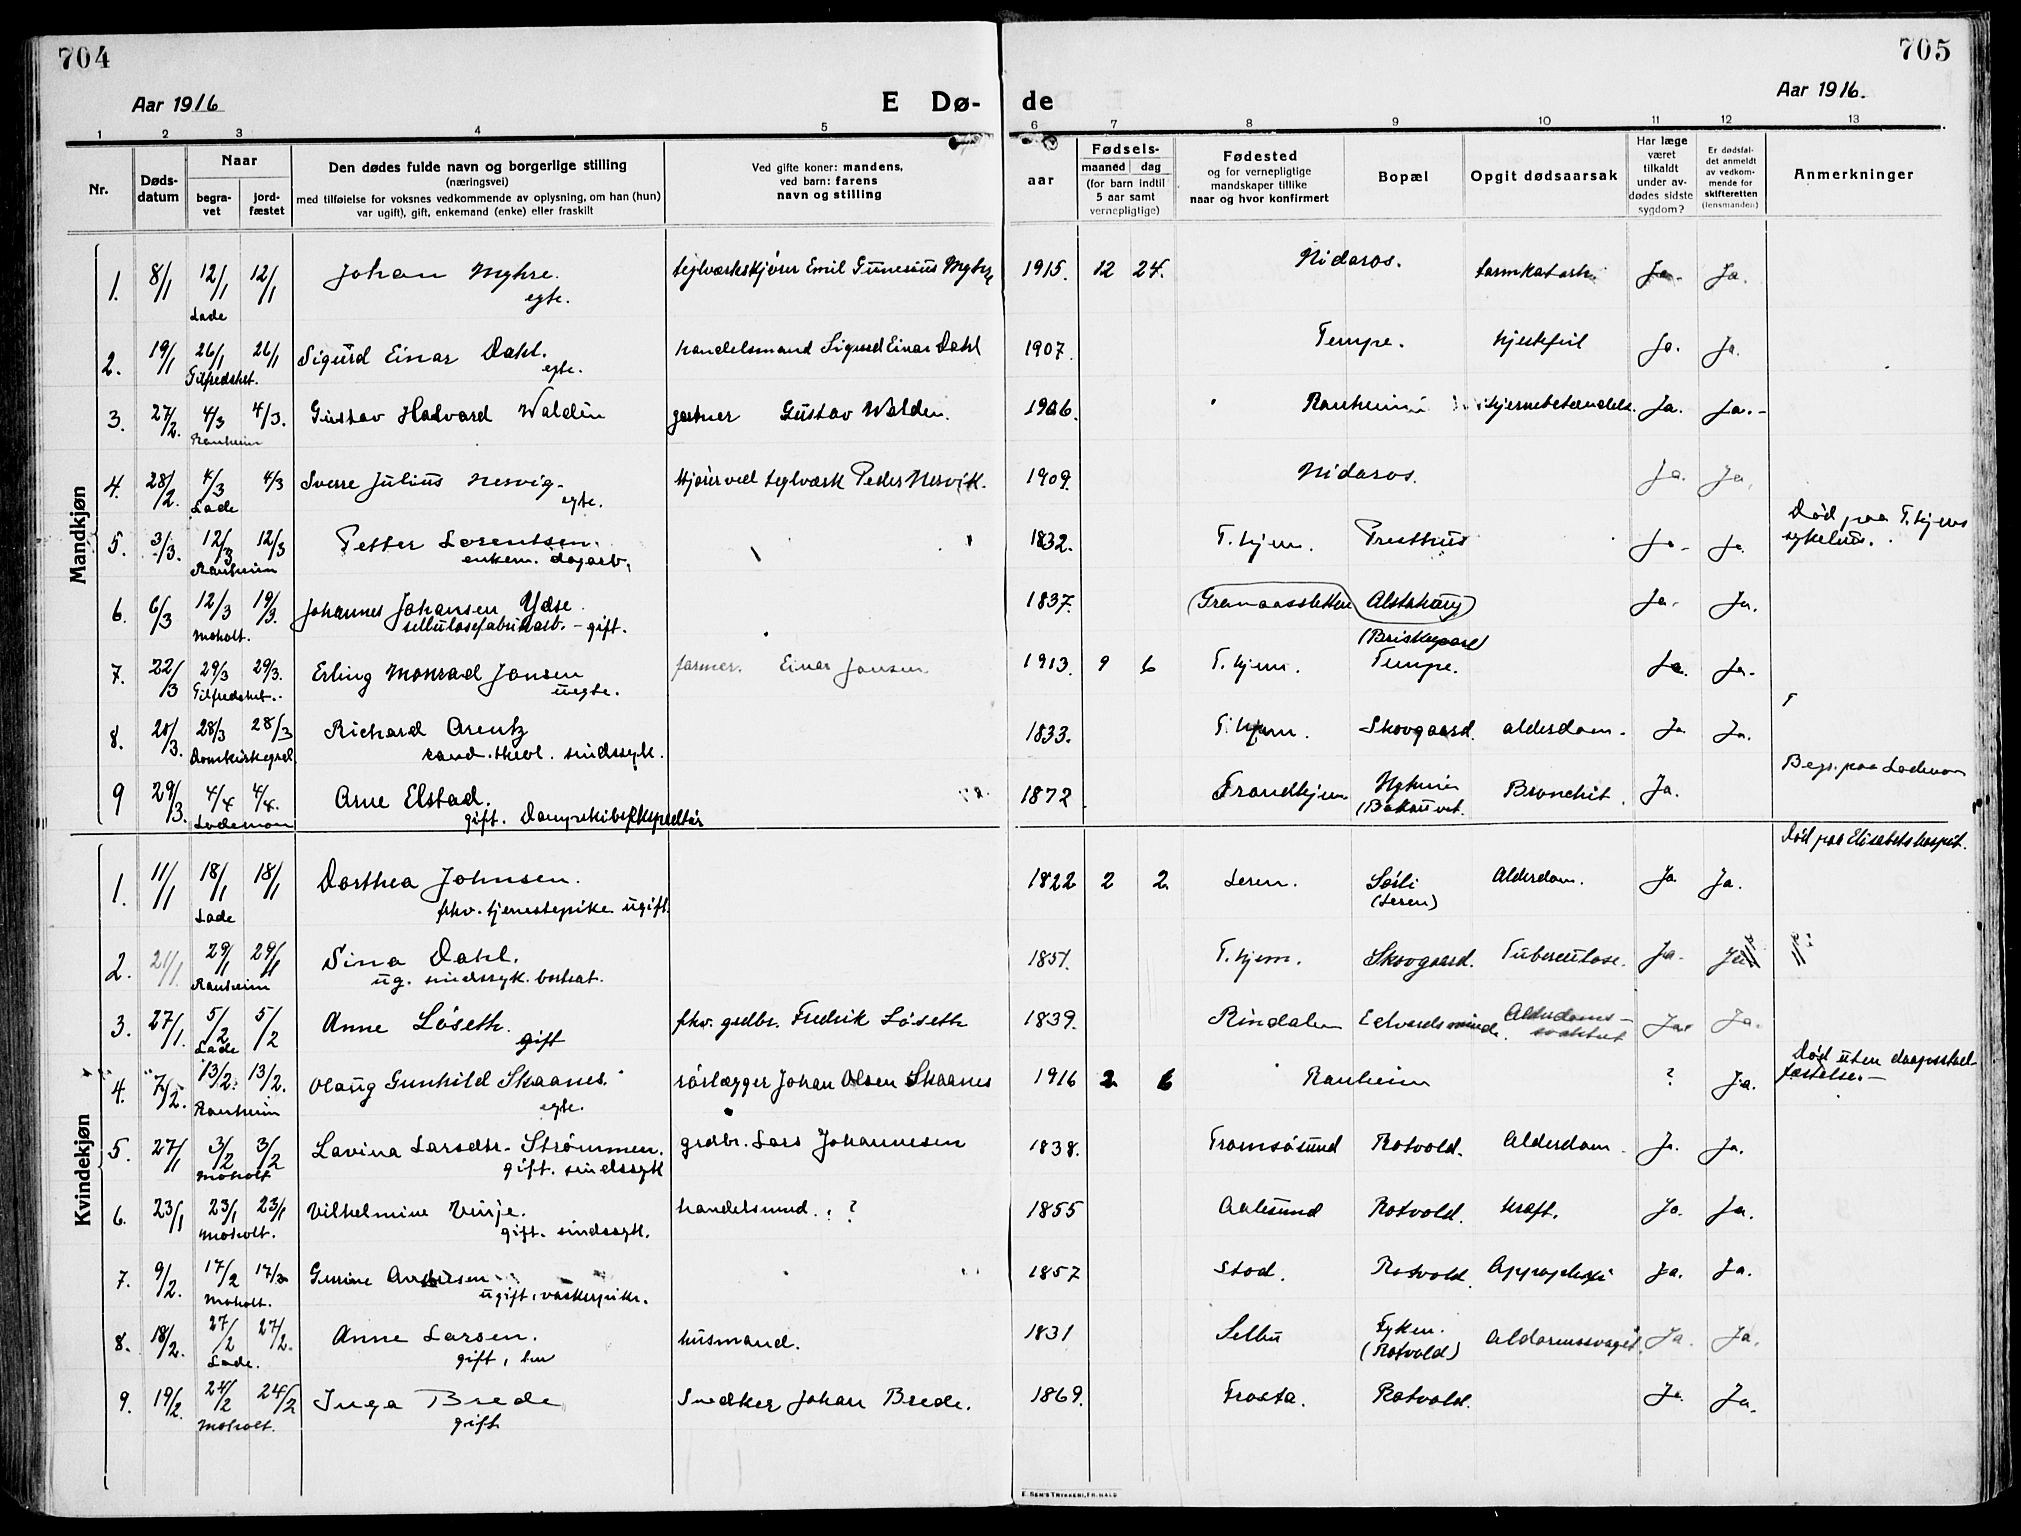 704
705
Aar 1916
E Dø-
de
Aar 1916.
1 2 3 4 5 6 7 8 9 10 11 12 13
Nr.
Døds-
datum
Naar
begra-
vet
jord-
fæstet
Den dødes fulde navn og borgerlige stilling
(næringsvei)
med tilføielse for voksnes vedkommende av oplysning, om han (hun)
var ugift), gift, enkemand (enke) eller fraskilt
Ved gifte koner: mandens,
ved barn: farens
navn og stilling
aar
Fødsels-
maaned dag
(for barn indtil
5 aar samt
vernepligtige)
Fødested
og for vernepligtige
mandskaper tillike
naar og hvor konfirmert
Bopæl
Opgit dødsaarsak
Har læge
været
tilkaldt
under av-
dødes sidste
sygdom?
Er dødsfal-
det anmeldt
av vedkom-
mende for
skifteretten
(lensmanden)
Anmerkninger
Mandkjøn
1. 8/1 12/1 12/1 Johan Myhre. teglværkskjører Emil Gunerius Myhre 1915. 12 24. Nidaros. tarmkatarh Ja. Ja.
Lade egte.
2. 19/1 26/1 26/1 Sigurd Einar Dahl. handelsmand Sigurd Einar Dahl 1907. Tempe. hjertefeil Ja. Ja.
Tilfredshet. egte.
3. 27/2. 4/3 4/3. Gustav Halvard Waldin gartner Gustav Walden. 1906. Ranheim hjernebetændels. Ja. Ja.-
Ranheim
4. 28/2. 4/3 4/3 Sverre Julius Nesvig- kjører ved teglværk Peder Nesvik. 1909. Nidaros. Ja. Ja.
Lade egte.
5. 3/3. 12/3 12/3 Petter Lorentsen. 1832. T.hjem. Presthus Ja- Ja. Død paa T.hjems
sykehus.
Ranheim enkem. dagarb.
6. 6/3 12/3 19/3. Johannes Johansen Ydse. 1837. (Granaassletten Alstahaug) Ja. Ja.
Moholt. cellulosefabrikarb. - gift. (Briskeparl)
7. 22/3 29/3 29/3. Erling Monrad Jonsen farmer. Einar Jonsen 1913. 9 6 T.hjem. Tempe. Ja. Ja.
Tilfredshet. uegte.
8. 20/3. 28/3 28/3 Richard Arentz 1833. T.hjem. Skovgaard. alderdom. Ja Ja.
Domkirkegrd. cand. theol. sindssyk.
9 29/3. 4/4 4/4. Arne Elstad. 1872 Trondhjem Bronchit. Ja. Begr. paa Lademoen
Lademoen gift. Dampskibsekspeditør
Kvindekjøn
Død paa Elisabets hospit.
1. 11/1 18/1 18/1 Dorthea Johnsen. 1822 2 2. Leren. Soli Alderdom. Ja Ja.
Lade fhv. tjenestepike ugift. (Leren)
2. 21/1. 29/1 29/1 Sina Dahl. 1851. T.hjem. Skovgaard. Tuberculose. Ja. Ja
Ranheim ug. sindssyk. bortsat.
3. 27/1. 5/2 5/2 Anne Løseth. fhv. grdbr. Fredrik Løseth 1839. Rindalen Edvardsminde. Alderdoms-
svakhet Ja. Ja.
Lade gift
4. 7/2. 13/2. 13/2. Olaug Gunhild Skaanes. rørlægger Johan Olsen Skaanes 1916 2 6 Ranheim ? Ja. Død uten daapsstad-
fæstelse.-
Ranheim egte.
5. 27/1 3/2 3/2 Lavina Larsdtr. Strømmen. grdbr. Lars Johannesen 1838. Tromsøsund Rotvold. Alderdom. Ja. Ja.
Moholt gift. sindssyk
6. 23/1 23/1 23/1 Vilhelmine Vinje. handelsmd. ? 1855 Aalesund Rotvold. kræft. Ja. Ja.
Moholt. gift. sindssyk.
7. 9/2. 17/2 17/2 Gurine 1857 Stod. Rotvold. Appoplexi Ja. Ja.
Moholt. ugift, vaskerpike.
8. 18/2. 27/2 27/2. Anne Larsen. husmand. 1831 Selbu Tyken. Alderdomssvaget. Ja. Ja.
Lade. gift, (Rotvold)
9. 19/2. 24/2 24/2 Inga Brede Snedker Johan Brede. 1869. Frosta. Rotvold. Ja. Ja.
Moholt. gift
E. SEM'S TRYKKERI, FR.HALD